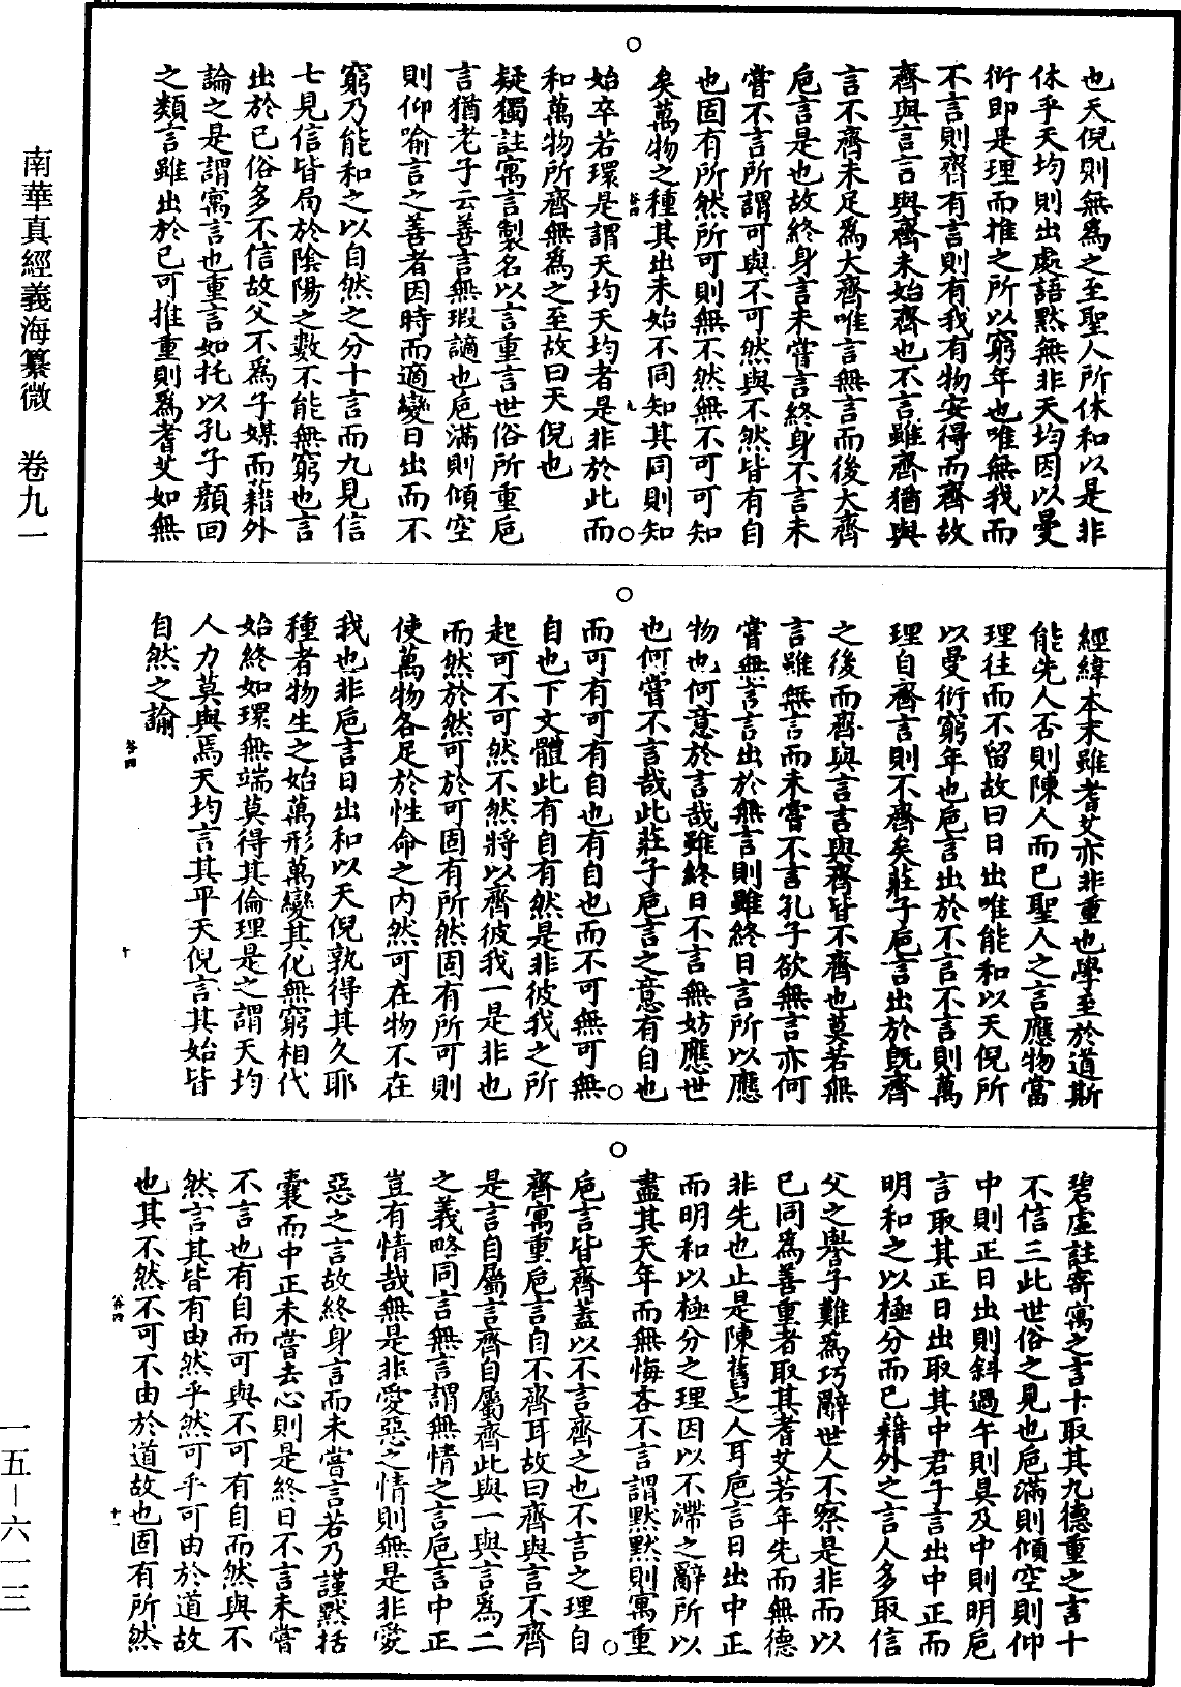 也天倪則無為之至聖人所休和以是非
休乎天均則出處語默無非天均因以曼
衍即是理而推之所以窮年也唯無我而
不言則齊有言則有我有物安得而齊故
齊與言言與齊未始齊也不言雖齊猶與
言不齊未足為大齊唯言無言而後大齊
巵言是也故終身言未嘗言終身不言未
嘗不言所謂可與不可然與不然皆有自
也固有所然所可則無不然無不可可知
矣萬物之種其出未始不同知其同則知
始卒若環是謂天均天均者是非於此而
和萬物所齊無為之至故曰天倪也
疑獨註寓言製名以言重言世俗所重巵
言猶老子云善言無瑕讁也巵滿則傾空
則仰喻言之善者因時而適變日出而不
窮乃能和之以自然之分十言而九見信
七見信皆局於陰陽之數不能無窮也言
出於已俗多不信故父不為子媒而藉外
論之是謂寓言也重言如托以孔子顏回
之類言雖出於已可推重則為耆艾如無
經緯本末雖耆艾亦非重也學至於道斯
能先人否則陳人而已聖人之言應物當
理往而不留故曰日出唯能和以天倪所
以曼衍窮年也巵言出於不言不言則萬
理自齊言則不齊矣莊子巵言出於既齊
之後而齊與言言與齊皆不齊也莫若無
言雖無言而未嘗不言孔子欲無言亦何
嘗無言言出於無言則雖終日言所以應
物也何意於言哉雖終日不言無妨應世
也何嘗不言哉此莊子巵言之意有自也
而可有可有自也有自也而不可無可無
自也下文體此有自有然是非彼我之所
起可不可然不然將以齊彼我一是非也
而然於然可於可固有所然固有所可則
使萬物各足於性命之內然可在物不在
我也非巵言日出和以天倪孰得其久耶
種者物生之始萬形萬變其化無窮相代
始終如環無端莫得其倫理是之謂天均
人力莫與焉天均言其平天倪言其始皆
自然之論
碧虛註寄寓之言十取其九德重之言十
不信三此世俗之見也巵滿則傾空則仰
中則正日出則斜過午則具及中則明巵
言取其正日出取其中君子言出中正而
明和之以極分而已藉外之言人多取信
父之譽子難為巧辭世人不察是非而以
已同為善重者取其耆艾若年先而無德
非先也止是陳舊之人耳巵言日出中正
而明和以極分之理因以不滯之辭所以
盡其天年而無悔吝不言謂默默則寓重
巵言皆齊蓋以不言齊之也不言之理自
齊寓重巵言自不齊耳故曰齊與言不齊
是言自屬言齊自屬齊此與一與言為二
之義略同言無言謂無情之言巵言中正
豈有情哉無是非愛惡之情則無是非愛
惡之言故終身言而未嘗言若乃謹默括
囊而中正未嘗去心則是終日不言未嘗
不言也有自而可與不可有自而然與不
然言其皆有由然乎然可乎可由於道故
也其不然不可不由於道故也固有所然
南華真經義海纂微　卷九一
一五－六一三